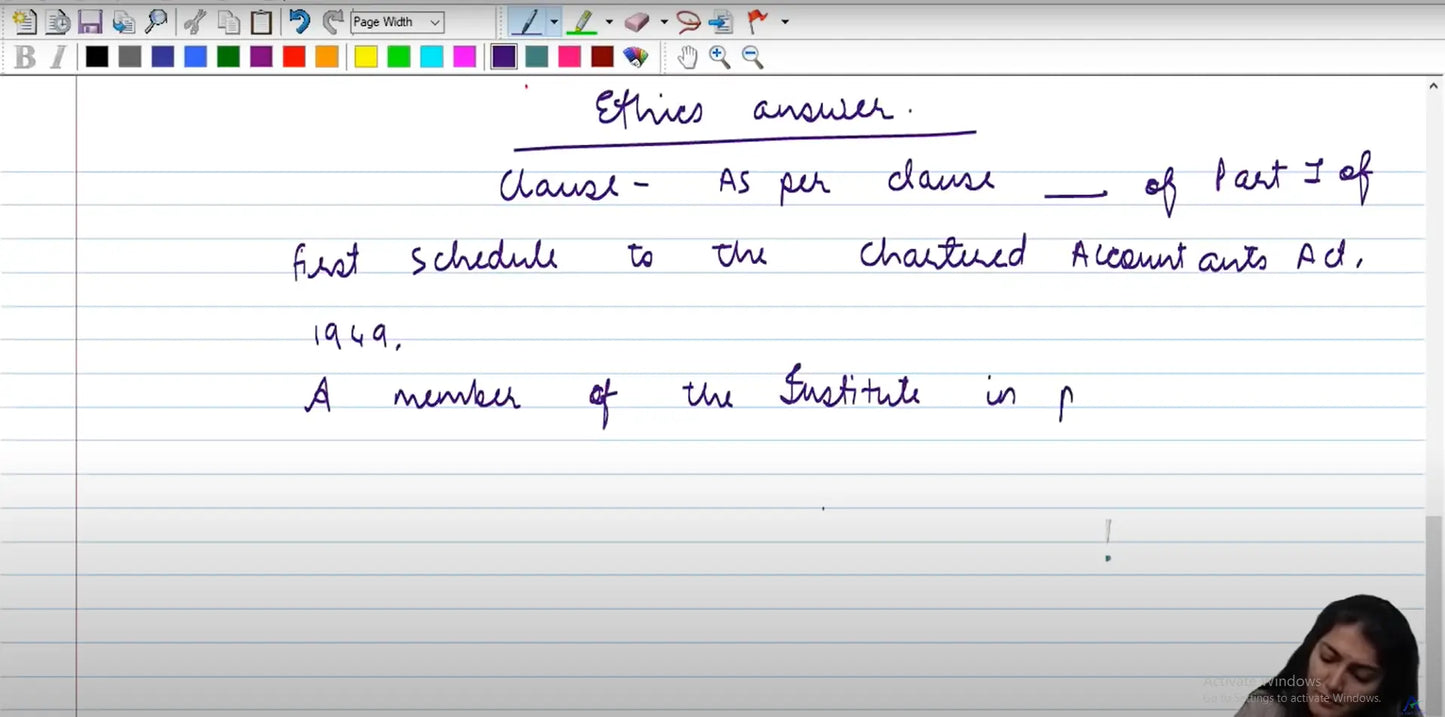 Page Width
B I
Ethics answer.
Clause - As per clause ___ of Part I of
first schedule to the Chartered Accountants Act,
1949.
A member of the Institute in p
!
Activate Windows
Go to Settings to activate Windows.